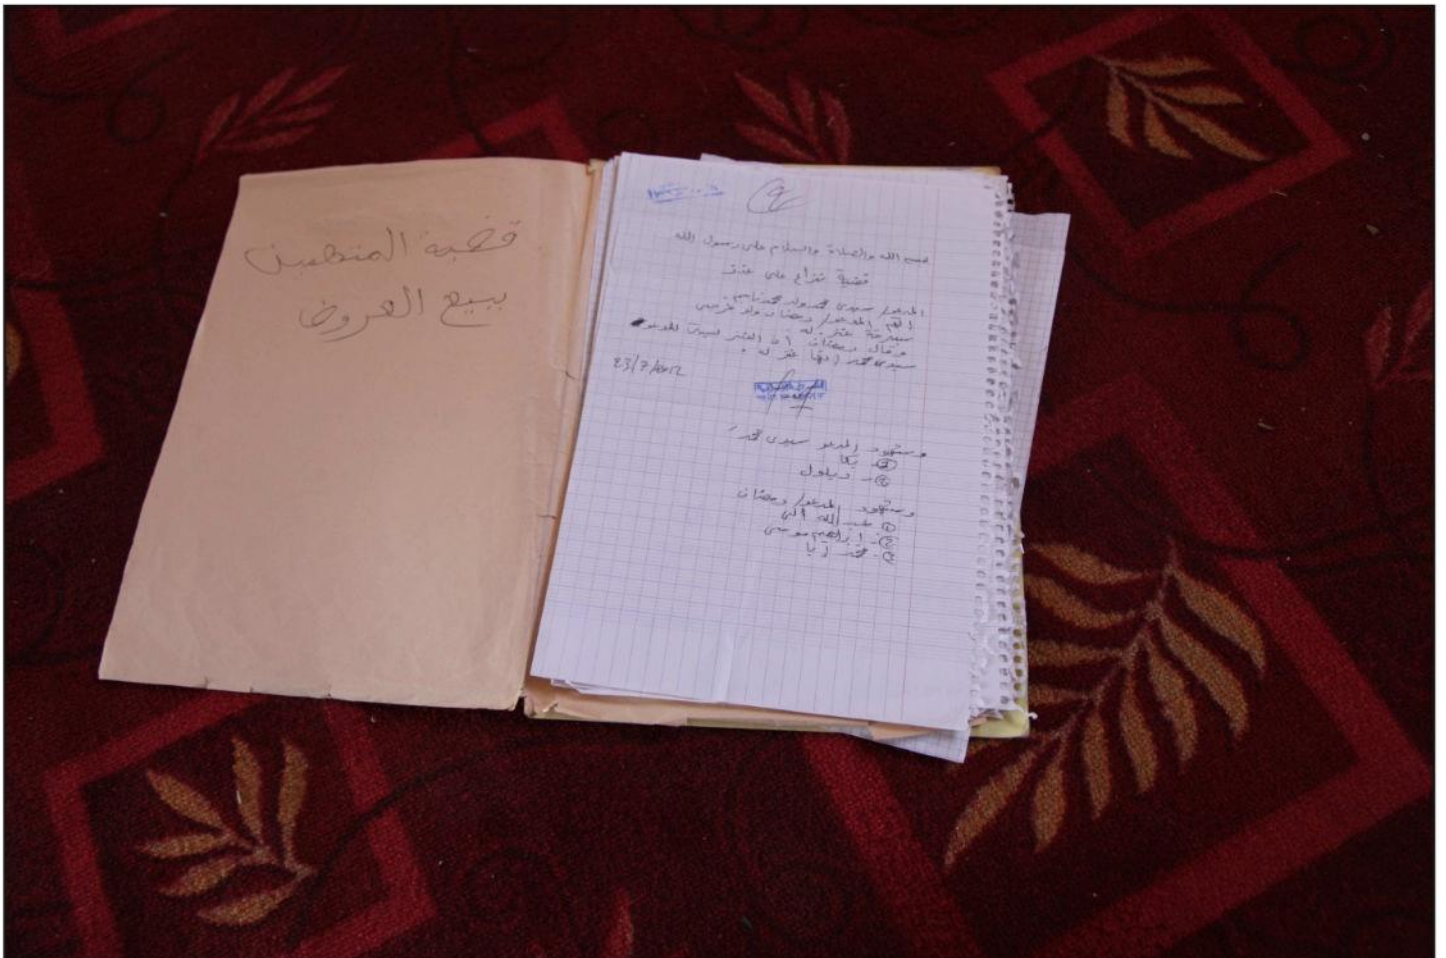 قضية المتهمين
ببيع العروض
بسم الله والصلاة والسلام على رسول الله
قضية نزاع على عنز
المدعو/ سيدي محمد ولد محمد
اتهم المدعو/ رمضان ولد
بسرقة عنز له
وقال رمضان أن العنز ليست للمدعو
سيدي محمد إنها عنز له.
23/7/2012
وشهود المدعو سيدي محمد/
وشهود المدعو/ رمضان
① عبد الله
②- إبراهيم موسى
③- محمد